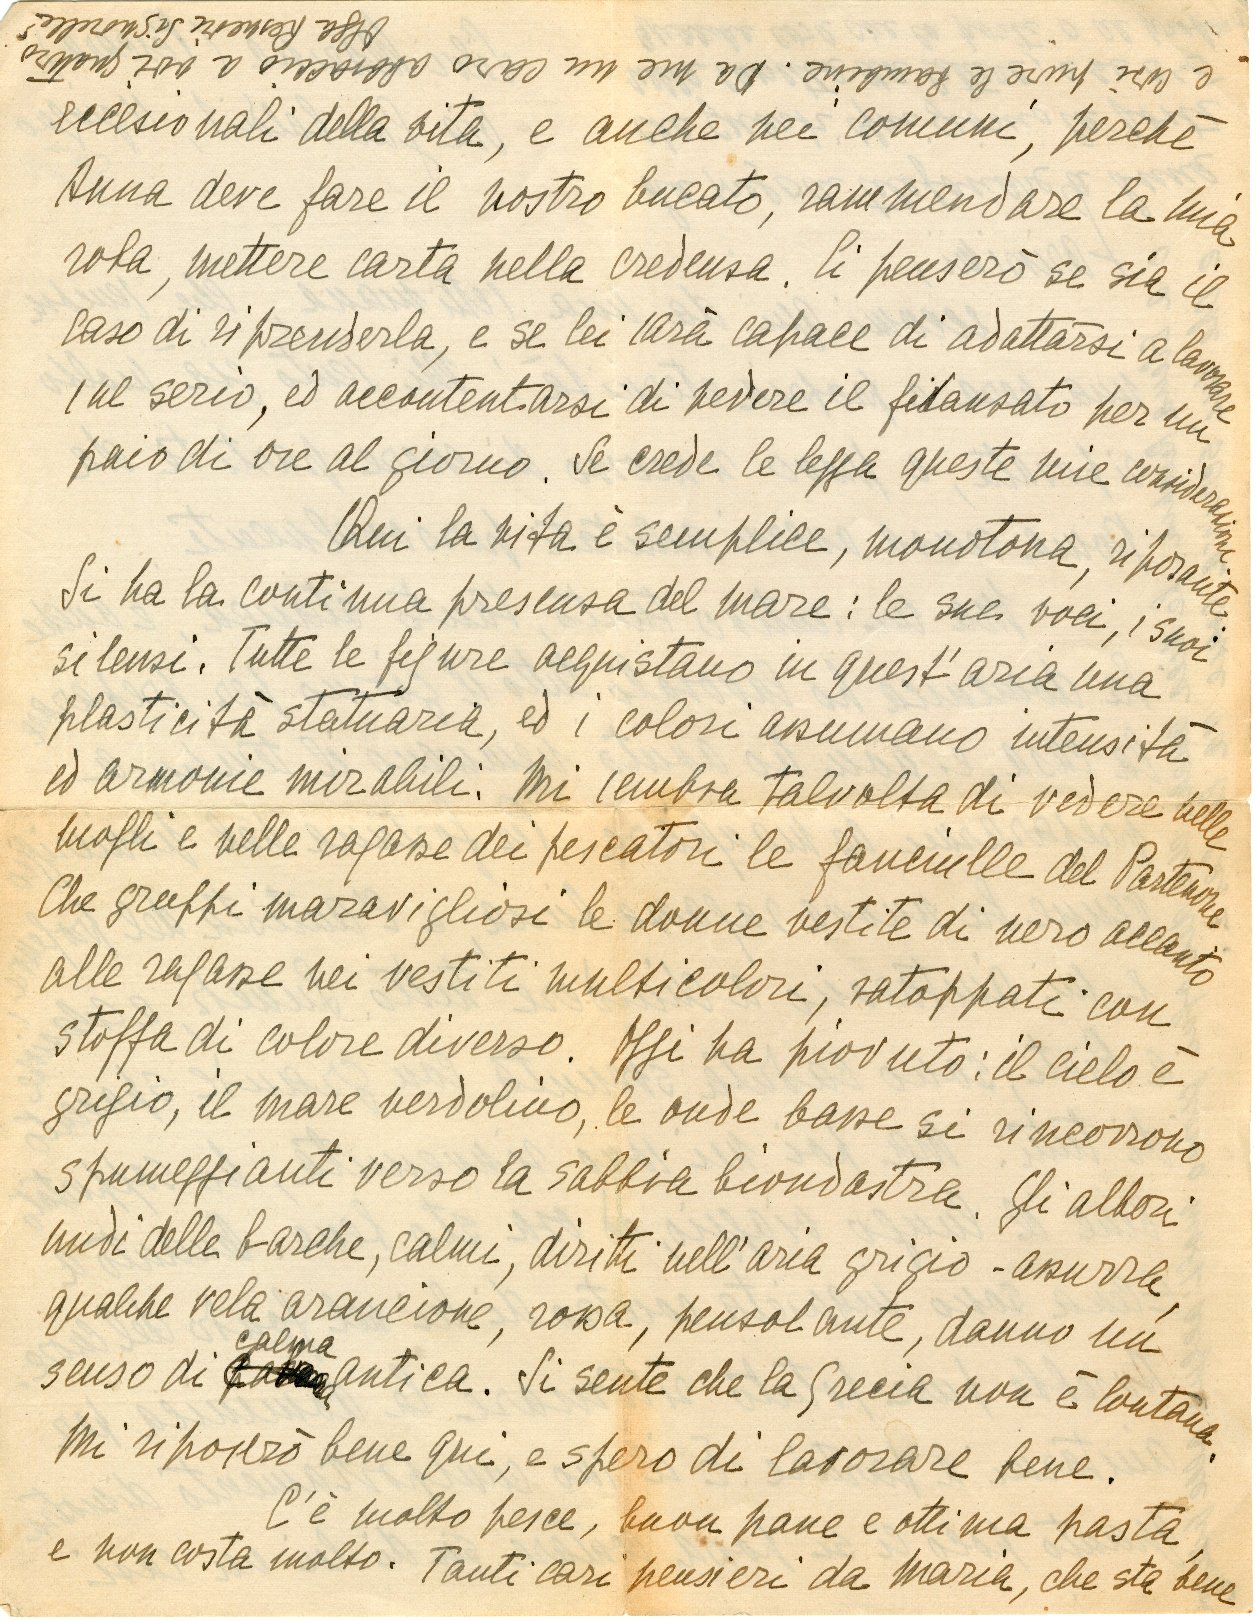 eccesionali della vita, e anche nei comuni, perchè
Anna deve fare il nostro bucato, rammendare la mia
roba, mettere carta nella credensa. Ci penserò se sia il
caso di riprenderla, e se lei sarà capace di adattarsi a lavorare
sul serio, ed accontentarsi di vedere il fidansato per un
paio di ore al giorno. Se crede le legga queste mie considerazioni.
Qui la vita è semplice, monotona, riposante.
Si ha la continua presensa del mare: le sue voci, i suoi
silensi. Tutte le figure acquistano in quest'aria una
plasticità statuaria, ed i colori assumano intensità
ed armonie mirabili. Mi sembra talvolta di vedere nelle
mogli e nelle ragasse dei pescatori le fanciulle del Partenone
Che gruppi maravigliosi le donne vestite di nero accanto
alle ragasse nei vestiti multicolori, ratoppati con
stoffa di colore diverso. Oggi ha piovuto: il cielo è
grigio, il mare verdolino, le onde basse si rincorrono
spumeggianti verso la sabbia biondastra. Gli albori
nudi delle barche, calmi, diritti nell'aria grigio-assurra,
qualche vela arancione, rossa, pensolante, danno un
senso di calma antica. Si sente che la Grecia non è lontana.
Mi riposerò bene qui, e spero di lavorare bene.
C'è molto pesce, buon pane e ottima pasta,
e non costa molto. Tanti cari pensieri da Maria, che sta bene
e così pure le bambine. Da me un caro abbraccio a voi quatro
Olga Resnevic Signorelli